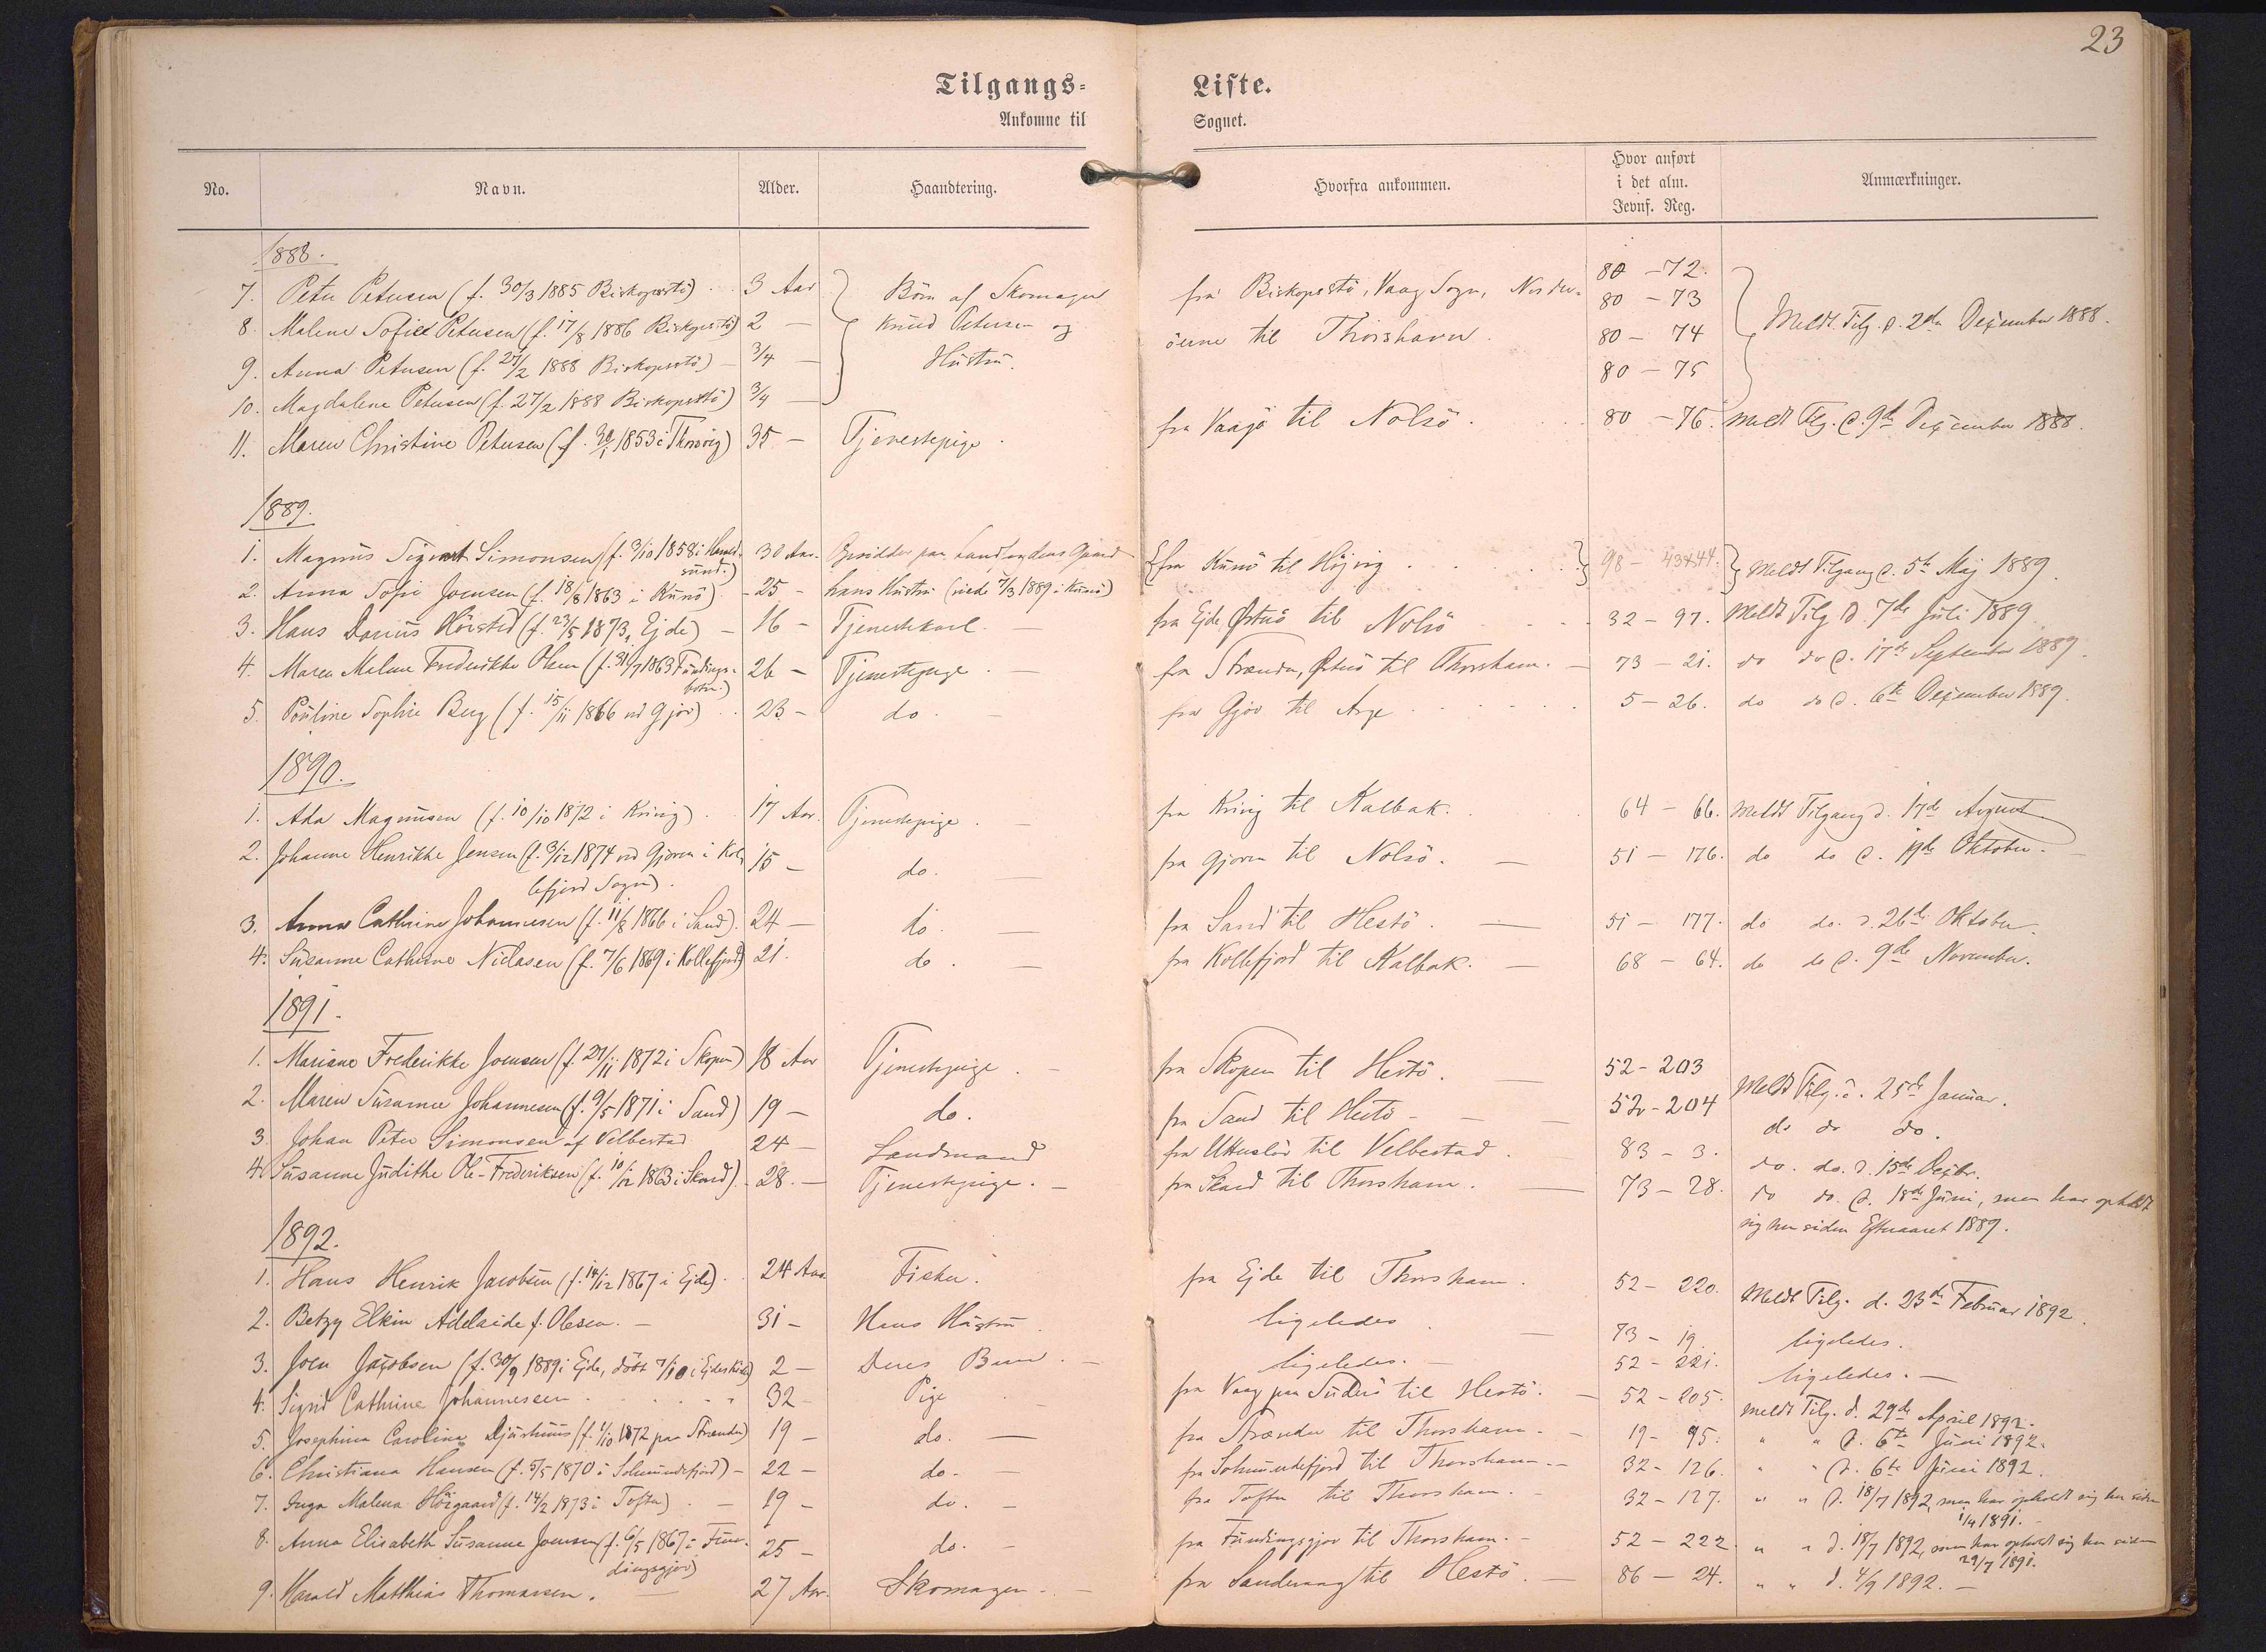 23
Tilgangs- Liste.
Ankomne til Sognet.
No. Navn. Alder. Haandtering. Hvorfra ankommen. Hvor anført i det alm. Jevnf. Reg. Anmærkninger.
1888.
7. Peter Petersen (f. 30/3 1885 Biskopsstö) 3 Aar Börn af Skomager fra Biskopsstö, Vaag Sogn, Norder- 80 - 72.
8. Malene Sofie Petersen (f. 17/8 1886 Biskopsstö) 2 - Knud Petersen og öerne til Thorshavn. 80 - 73 Meldt Tilg. d. 2den Dezember 1888.
9. Anna Petersen (f. 27/2 1888 Biskopsstö) - 3/4 - Hustru. 80 - 74
10. Magdalene Petersen (f. 27/2 1888 Biskopsstö) 3/4 - 80 - 75
11. Maren Christine Petersen (f. 30/1 1853 i Thorsvig) 35 - Tjenestepige. fra Vaagö til Nolsö. 80 - 76. Meldt Tilg. d. 9de Dezember 1888.
1889.
1. Magnus Sigvart Simonsen (f. 3/10 1858 i Harald- 30 Aar. {fra Kunö til Höjvig } 98 - 43+44. } Meldt Tilgang d. 5te Maj 1889.
sund.)
2. Anna Sofie Joensen (f. 18/8 1863 i Kunö) - 25 - hans Hustru (viede 7/3 1889 i Kunö)
3. Hans Darius Hörsted (f. 23/5 1873, Ejde) - 16 - Tjenestekarl. fra Ejde, Østerö til Nolsö 32 - 97. Meldt Tilg. d. 7de Juli 1889.
4. Maren Malene Frederikke Olsen (f. 31/7 1863 Fundings- 26 - Tjenestepige. - fra Strænder, Østerö til Thorshavn. - 73 - 21. do do d. 17de September 1889.
botn.)
5. Pouline Sophie Berg (f. 15/11 1866 ved Gjov) 23 - do. - fra Gjov til Arge 5 - 26. do do d. 6te Dezember 1889.
1890.
1. Ada Magnusen (f. 10/10 1872 i Kvivig) 17 Aar. Tjenestepige. - fra Kvivig til Kalbak. 64 - 66. Meldt Tilgang d. 17de August.
2. Johanne Henrikke Jensen (f. 3/12 1874 ved Gjoven i Kol- 15 - do. - fra Gjoven til Nolsö. - 51 - 176. do do d. 19de Oktober.
lefjord Sogn).
3. Anna Cathrine Johannesen (f. 11/8 1866 i Sand). 24 - do. - fra Sand til Hestö. - 51 - 177. do do. d. 26de Oktober.
4. Susanne Cathrine Niclasen (f. 7/6 1869 i Kollefjord) 21. do. - fra Kollefjord til Kalbak. - 68 - 64. do do d. 9de November.
1891.
1. Mariane Frederikke Joensen (f. 27/11 1872 i Skopen) 18 Aar Tjenestepige. - fra Skopen til Hestö. - 52 - 203 Meldt Tilg. d. 25de Januar.
2. Maren Susanne Johannesen (f. 9/5 1871 i Sand) 19 - do. fra Sand til Hestö - - 52 - 204 do do do.
3. Johan Peter Simonsen af Velbestad 24 - Landmand fra Utterslev til Velbestad. 83 - 3. do. do. d. 15de Dezbr.
4. Susanne Judithe Ole-Frederiksen (f. 10/12 1863 i Skard). - 28. - Tjenestepige. - fra Skard til Thorshavn. - 73 - 28. do do. d. 18de Juni, men har opholdt
sig her siden Efteraaret 1889.
1892.
1. Hans Henrik Jacobsen (f. 14/12 1867 i Ejde). 24 Aar. Fisker. fra Ejde til Thorshavn. 52 - 220. Meldt Tilg. d. 23de Februar 1892.
2. Betzy Elkin Adelaide f. Olesen. - 31 - Hans Hustru. ligeledes - 73 - 19. ligeledes.
3. Joen Jacobsen (f. 30/9 1889 i Ejde, döbt 7/10 i Ejdes Kirke) 2 - Deres Barn. - ligeledes. 52 - 221. ligeledes. -
4. Sigrid Cathrine Johannessen 32 - Pige fra Vaag paa Suderö til Hestö. - 52 - 205. Meldt Tilg. d. 29de April 1892.
5. Josephina Carolina Djurhuus (f. 1/10 1872 paa Strænder) 19 - do. - fra Strænder til Thorshavn. - 19 - 95. " " d. 6te Juni 1892.
6. Christiana Hansen (f. 5/5 1870 i Solmundefjord) - 22 - do. - fra Solmundefjord til Thorshavn. - 32 - 126. " " d. 6te Juni 1892.
7. Inga Malena Höigaard (f. 14/2 1873 i Tofte). - 19 - do. - fra Tofte til Thorshavn. - 32 - 127. " " d. 18/7 1892, men har opholdt sig her siden
1/4 1891.
8. Anna Elisabeth Susanne Joensen (f. 6/5 1867 i Fun- 25 - do. - fra Fundingsgjov til Thorshavn. - 52 - 222. " " d. 18/7 1892, men har opholdt sig her siden
dingsgjov) 29/7 1891.
9. Harald Matthias Thomassen. - 27 Aar. Skomager. - fra Sandevaag til Hestö. - 86 - 24. " " d. 4/9 1892. -